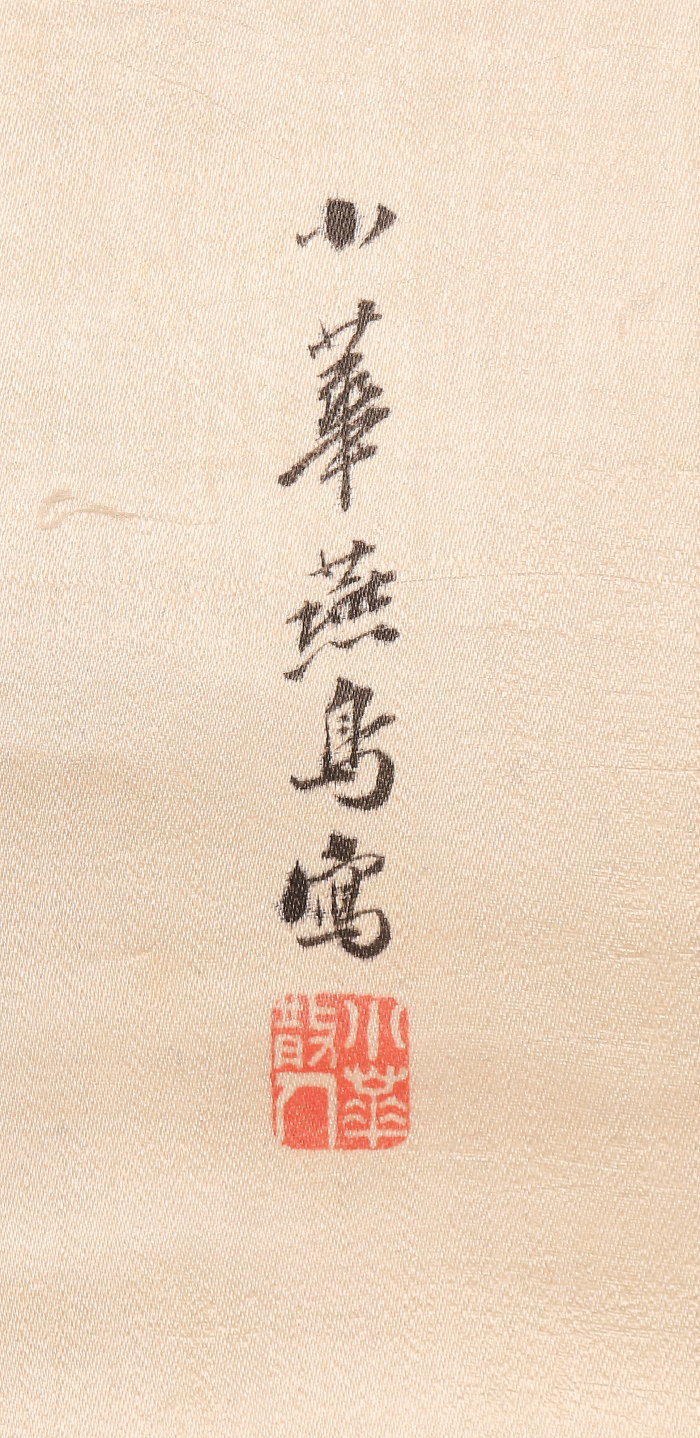 小華燕鳥寫
小華散人